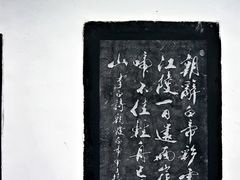 朝辭白帝彩雲
江陵一日還兩岸
啼不住輕舟已
山
李白詩